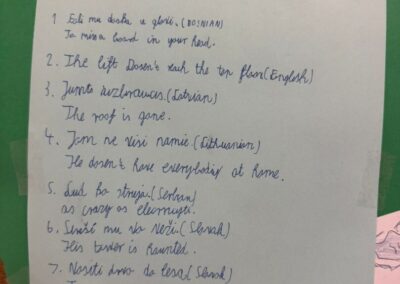 1 Fali mu daska u glavi. (BOSNIAN)
To miss a board in your head.
2. The lift Dosen't reach the top floor (English)
3. Jumts aizbraucis. (Latvian)
The roof is gone.
4. Jam ne visi namie. (Lithuanian)
He dosen't have everybody at home.
5. Lud ko struja. (Serbian)
as crazy as
6. Straší mu vo veži. (Slovak)
His tower is haunted.
7. Nositi drva do lesa. (Slovak)